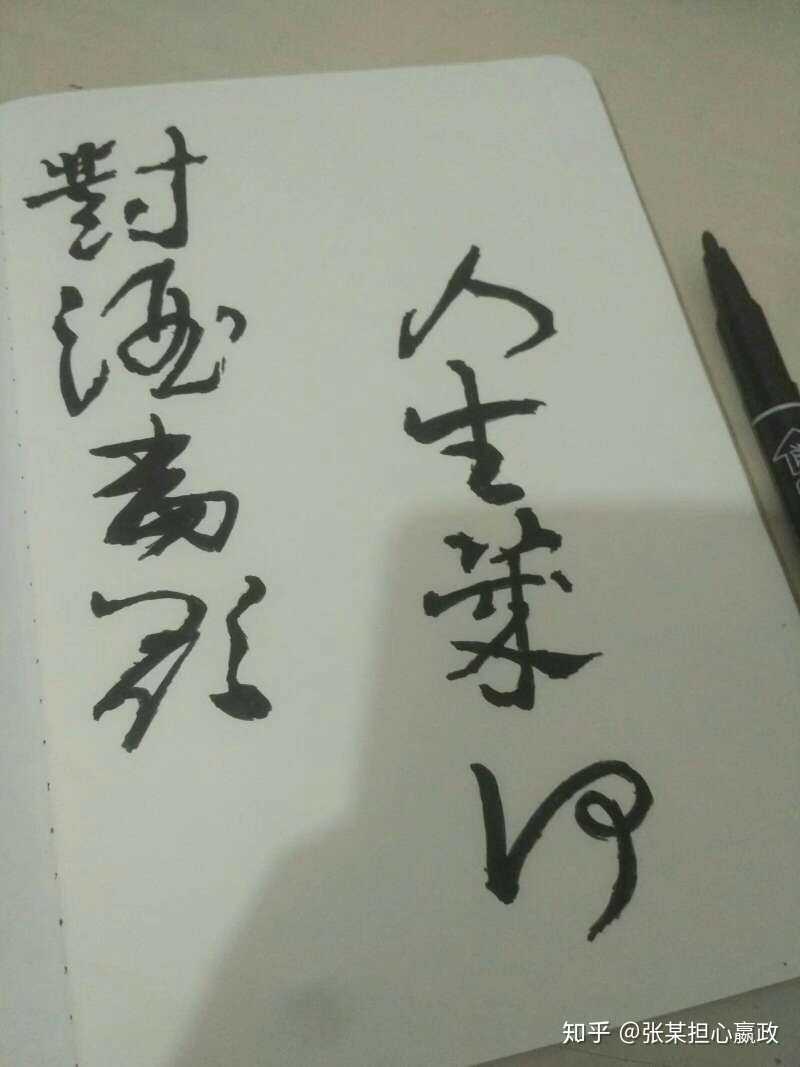 對酒當歌
人生幾何
知乎 @张某担心嬴政